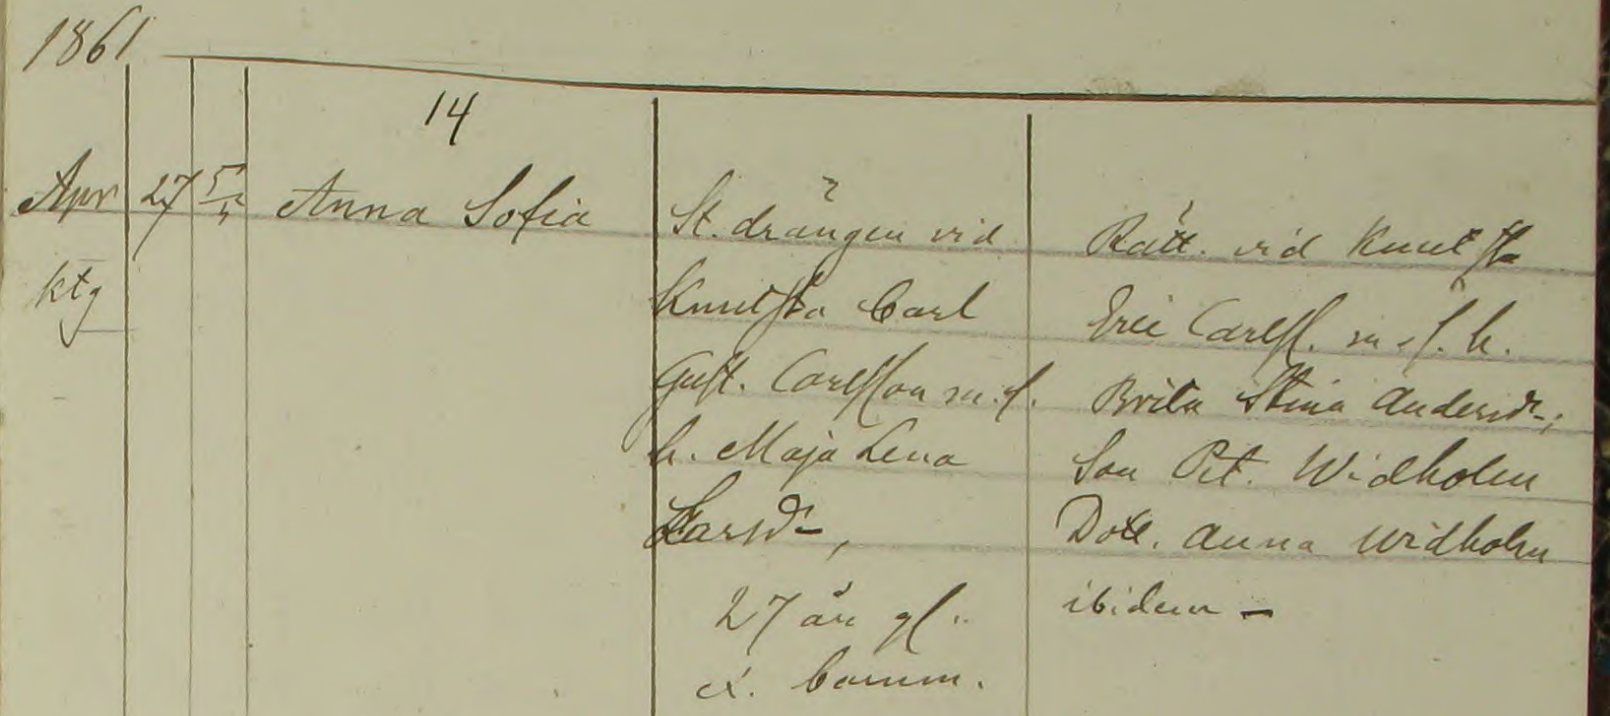 1861
14
Apr 27 5/5 Anna Sofia
ktg
St. drängen vid
Knutsta Carl
Gust. Carlsson m. s.
h. Maja Lena
Larsdr,
27 år gl.
Rätt. vid Knutsta
Eric Carlss. m. s. h.
Brita Stina Andersdr;
Son Pet. Widholm
Dott. Anna Widholm
ibidem –